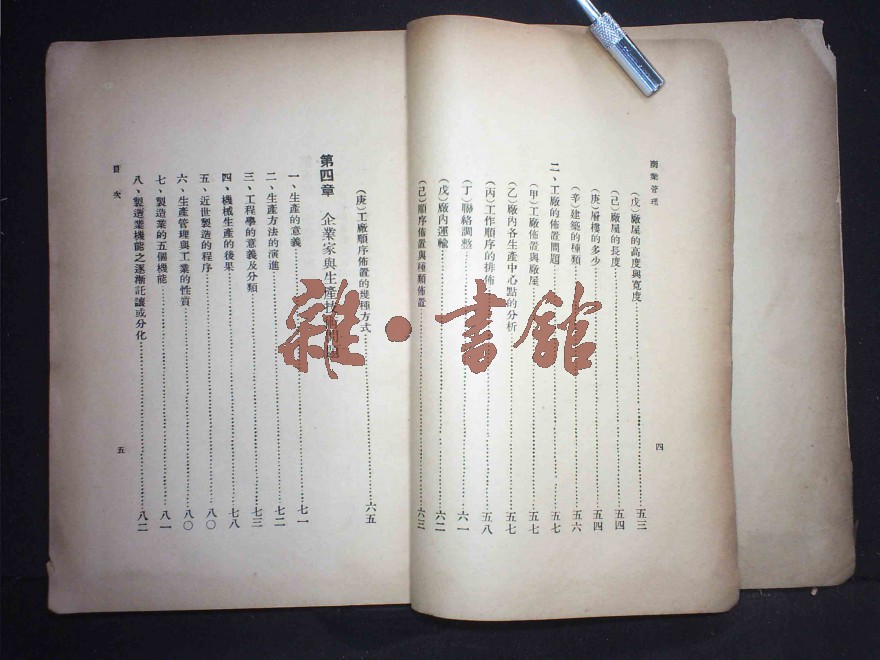 商業管理
(戊)廠屋的高度與寬度……五三
(己)廠屋的長度……五四
(庚)層樓的多少……五四
(辛)建築的種類……五六
二、工廠的佈置問題……五七
(甲)工廠佈置與廠屋……五七
(乙)廠內各生產中心點的分析……五七
(丙)工作順序的排佈……五八
(丁)聯絡調整……六一
(戊)廠內運輸……六二
(己)順序佈置與種類佈置……六三
四
(庚)工廠順序佈置的幾種方式……六五
第四章 企業家與生產技
一、生產的意義……七一
二、生產方法的演進……七二
三、工程學的意義及分類……七三
四、機械生產的後果……七八
五、近世製造的程序……八〇
六、生產管理與工業的性質……八〇
七、製造業的五個機能……八一
八、製造業機能之逐漸託讓或分化……八二
目次
五
雜·書館